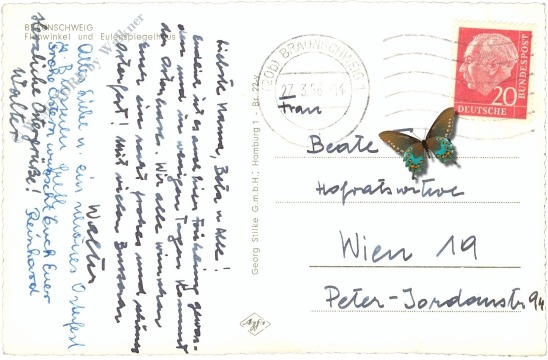 BRAUNSCHWEIG
Flohwinkel und Eulenspiegelhaus
Liebste Mama, Beate u. Alle!
endlich ist es auch hier Frühling gewor-
den und in wenigen Tagen kommt
der Osterhase. Wir alle wünschen
Euch ein recht frohes und schönes
Osterfest. Mit vielen Bussern
Walter
Alles Liebe u. ein schönes Osterfest
Frohe Ostern wünscht Euch Euer
Reinhard
Herzliche Ostergrüße!
Walter
Georg Stilke G.m.b.H., Hamburg 1 - Br. 22
(20b) BRAUNSCHWEIG 1
27.3.56
DEUTSCHE
BUNDESPOST
20
Frau
Beate
Hofratswitwe
Wien 19
Peter-Jordanstr 94